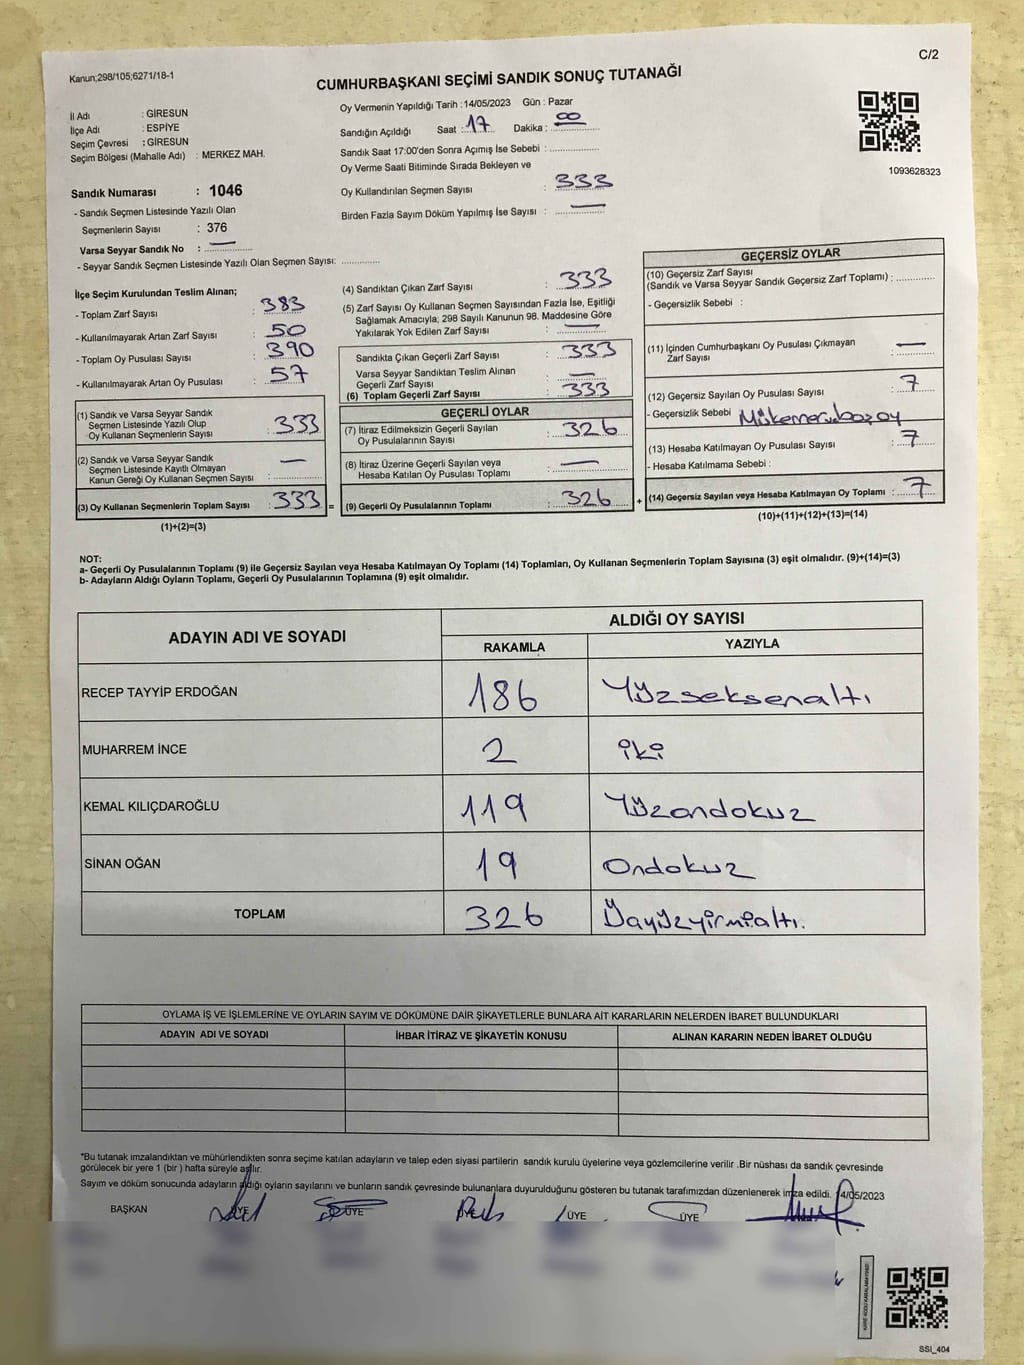 Kanun;298/105;6271/18-1
C/2
CUMHURBAŞKANI SEÇİMİ SANDIK SONUÇ TUTANAĞI
İl Adı : GİRESUN
İlçe Adı : ESPİYE
Seçim Çevresi : GİRESUN
Seçim Bölgesi (Mahalle Adı) : MERKEZ MAH.
Sandık Numarası : 1046
- Sandık Seçmen Listesinde Yazılı Olan
Seçmenlerin Sayısı : 376
Varsa Seyyar Sandık No : —
- Seyyar Sandık Seçmen Listesinde Yazılı Olan Seçmen Sayısı: ..............
Oy Vermenin Yapıldığı Tarih :14/05/2023 Gün : Pazar
Sandığın Açıldığı Saat : 17 Dakika : 00
Sandık Saat 17:00'den Sonra Açımış İse Sebebi : ..............
Oy Verme Saati Bitiminde Sırada Bekleyen ve
Oy Kullandırılan Seçmen Sayısı : 333
Birden Fazla Sayım Döküm Yapılmış İse Sayısı : —
1093628323
İlçe Seçim Kurulundan Teslim Alınan;
- Toplam Zarf Sayısı : 383
- Kullanılmayarak Artan Zarf Sayısı : 50
- Toplam Oy Pusulası Sayısı : 390
- Kullanılmayarak Artan Oy Pusulası : 57
(1) Sandık ve Varsa Seyyar Sandık
Seçmen Listesinde Yazılı Olup
Oy Kullanan Seçmenlerin Sayısı : 333
(2) Sandık ve Varsa Seyyar Sandık
Seçmen Listesinde Kayıtlı Olmayan
Kanun Gereği Oy Kullanan Seçmen Sayısı : —
(3) Oy Kullanan Seçmenlerin Toplam Sayısı : 333 =
(1)+(2)=(3)
(4) Sandıktan Çıkan Zarf Sayısı : 333
(5) Zarf Sayısı Oy Kullanan Seçmen Sayısından Fazla İse, Eşitliği
Sağlamak Amacıyla; 298 Sayılı Kanunun 98. Maddesine Göre
Yakılarak Yok Edilen Zarf Sayısı : —
Sandıkta Çıkan Geçerli Zarf Sayısı : 333
Varsa Seyyar Sandıktan Teslim Alınan
Geçerli Zarf Sayısı : —
(6) Toplam Geçerli Zarf Sayısı : 333
GEÇERLİ OYLAR
(7) İtiraz Edilmeksizin Geçerli Sayılan
Oy Pusulalarının Sayısı : 326
(8) İtiraz Üzerine Geçerli Sayılan veya
Hesaba Katılan Oy Pusulası Toplamı : —
(9) Geçerli Oy Pusulalarının Toplamı : 326 +
GEÇERSİZ OYLAR
(10) Geçersiz Zarf Sayısı
(Sandık ve Varsa Seyyar Sandık Geçersiz Zarf Toplamı) : ..............
- Geçersizlik Sebebi :
(11) İçinden Cumhurbaşkanı Oy Pusulası Çıkmayan
Zarf Sayısı : —
(12) Geçersiz Sayılan Oy Pusulası Sayısı : 7
- Geçersizlik Sebebi
(13) Hesaba Katılmayan Oy Pusulası Sayısı : 7
- Hesaba Katılmama Sebebi :
(14) Geçersiz Sayılan veya Hesaba Katılmayan Oy Toplamı : 7
(10)+(11)+(12)+(13)=(14)
NOT:
a- Geçerli Oy Pusulalarının Toplamı (9) ile Geçersiz Sayılan veya Hesaba Katılmayan Oy Toplamı (14) Toplamları, Oy Kullanan Seçmenlerin Toplam Sayısına (3) eşit olmalıdır. (9)+(14)=(3)
b- Adayların Aldığı Oyların Toplamı, Geçerli Oy Pusulalarının Toplamına (9) eşit olmalıdır.
ADAYIN ADI VE SOYADI ALDIĞI OY SAYISI
RAKAMLA YAZIYLA
RECEP TAYYİP ERDOĞAN 186 Yüzseksenaltı
MUHARREM İNCE 2 iki
KEMAL KILIÇDAROĞLU 119 Yüzondokuz
SİNAN OĞAN 19 Ondokuz
TOPLAM 326 Üçyüzyirmialtı.
OYLAMA İŞ VE İŞLEMLERİNE VE OYLARIN SAYIM VE DÖKÜMÜNE DAİR ŞİKAYETLERLE BUNLARA AİT KARARLARIN NELERDEN İBARET BULUNDUKLARI
ADAYIN ADI VE SOYADI İHBAR İTİRAZ VE ŞİKAYETİN KONUSU ALINAN KARARIN NEDEN İBARET OLDUĞU
*Bu tutanak imzalandıktan ve mühürlendikten sonra seçime katılan adayların ve talep eden siyasi partilerin sandık kurulu üyelerine veya gözlemcilerine verilir .Bir nüshası da sandık çevresinde
görülecek bir yere 1 (bir ) hafta süreyle asılır.
Sayım ve döküm sonucunda adayların aldığı oyların sayılarını ve bunların sandık çevresinde bulunanlara duyurulduğunu gösteren bu tutanak tarafımızdan düzenlenerek imza edildi. 14/05/2023
BAŞKAN ÜYE ÜYE ÜYE ÜYE ÜYE
SSI_404